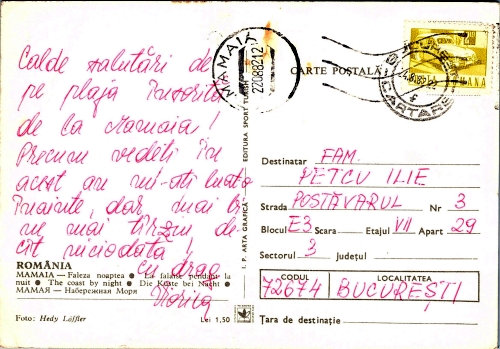 Calde salutări de
pe plaja însorită
de la Mamaia!
Precum vedeți în
acest an mi-ați luato
înainte, dar mai bi
ne mai tîrziu de-
cît niciodată!
Cu drag
Viorica
ROMÂNIA
MAMAIA — Faleza noaptea • La falaise pendant la
nuit • The coast by night • Die Küste bei Nacht •
МАМАЯ — Набережная Моря
Foto: Hedy Löffler
Lei 1,50
EDITURA SPORT TURISM
I. P. „ARTA GRAFICĂ"
MAMAIA
22.08.82.12
CARTE POȘTALĂ
CARTARE
Destinatar FAM.
PETCU ILIE
Strada POSTĂVARUL Nr 3
Blocul E3 Scara Etajul VII Apart 29
Sectorul 3 Județul
CODUL LOCALITATEA
72674 BUCUREȘTI
Țara de destinație